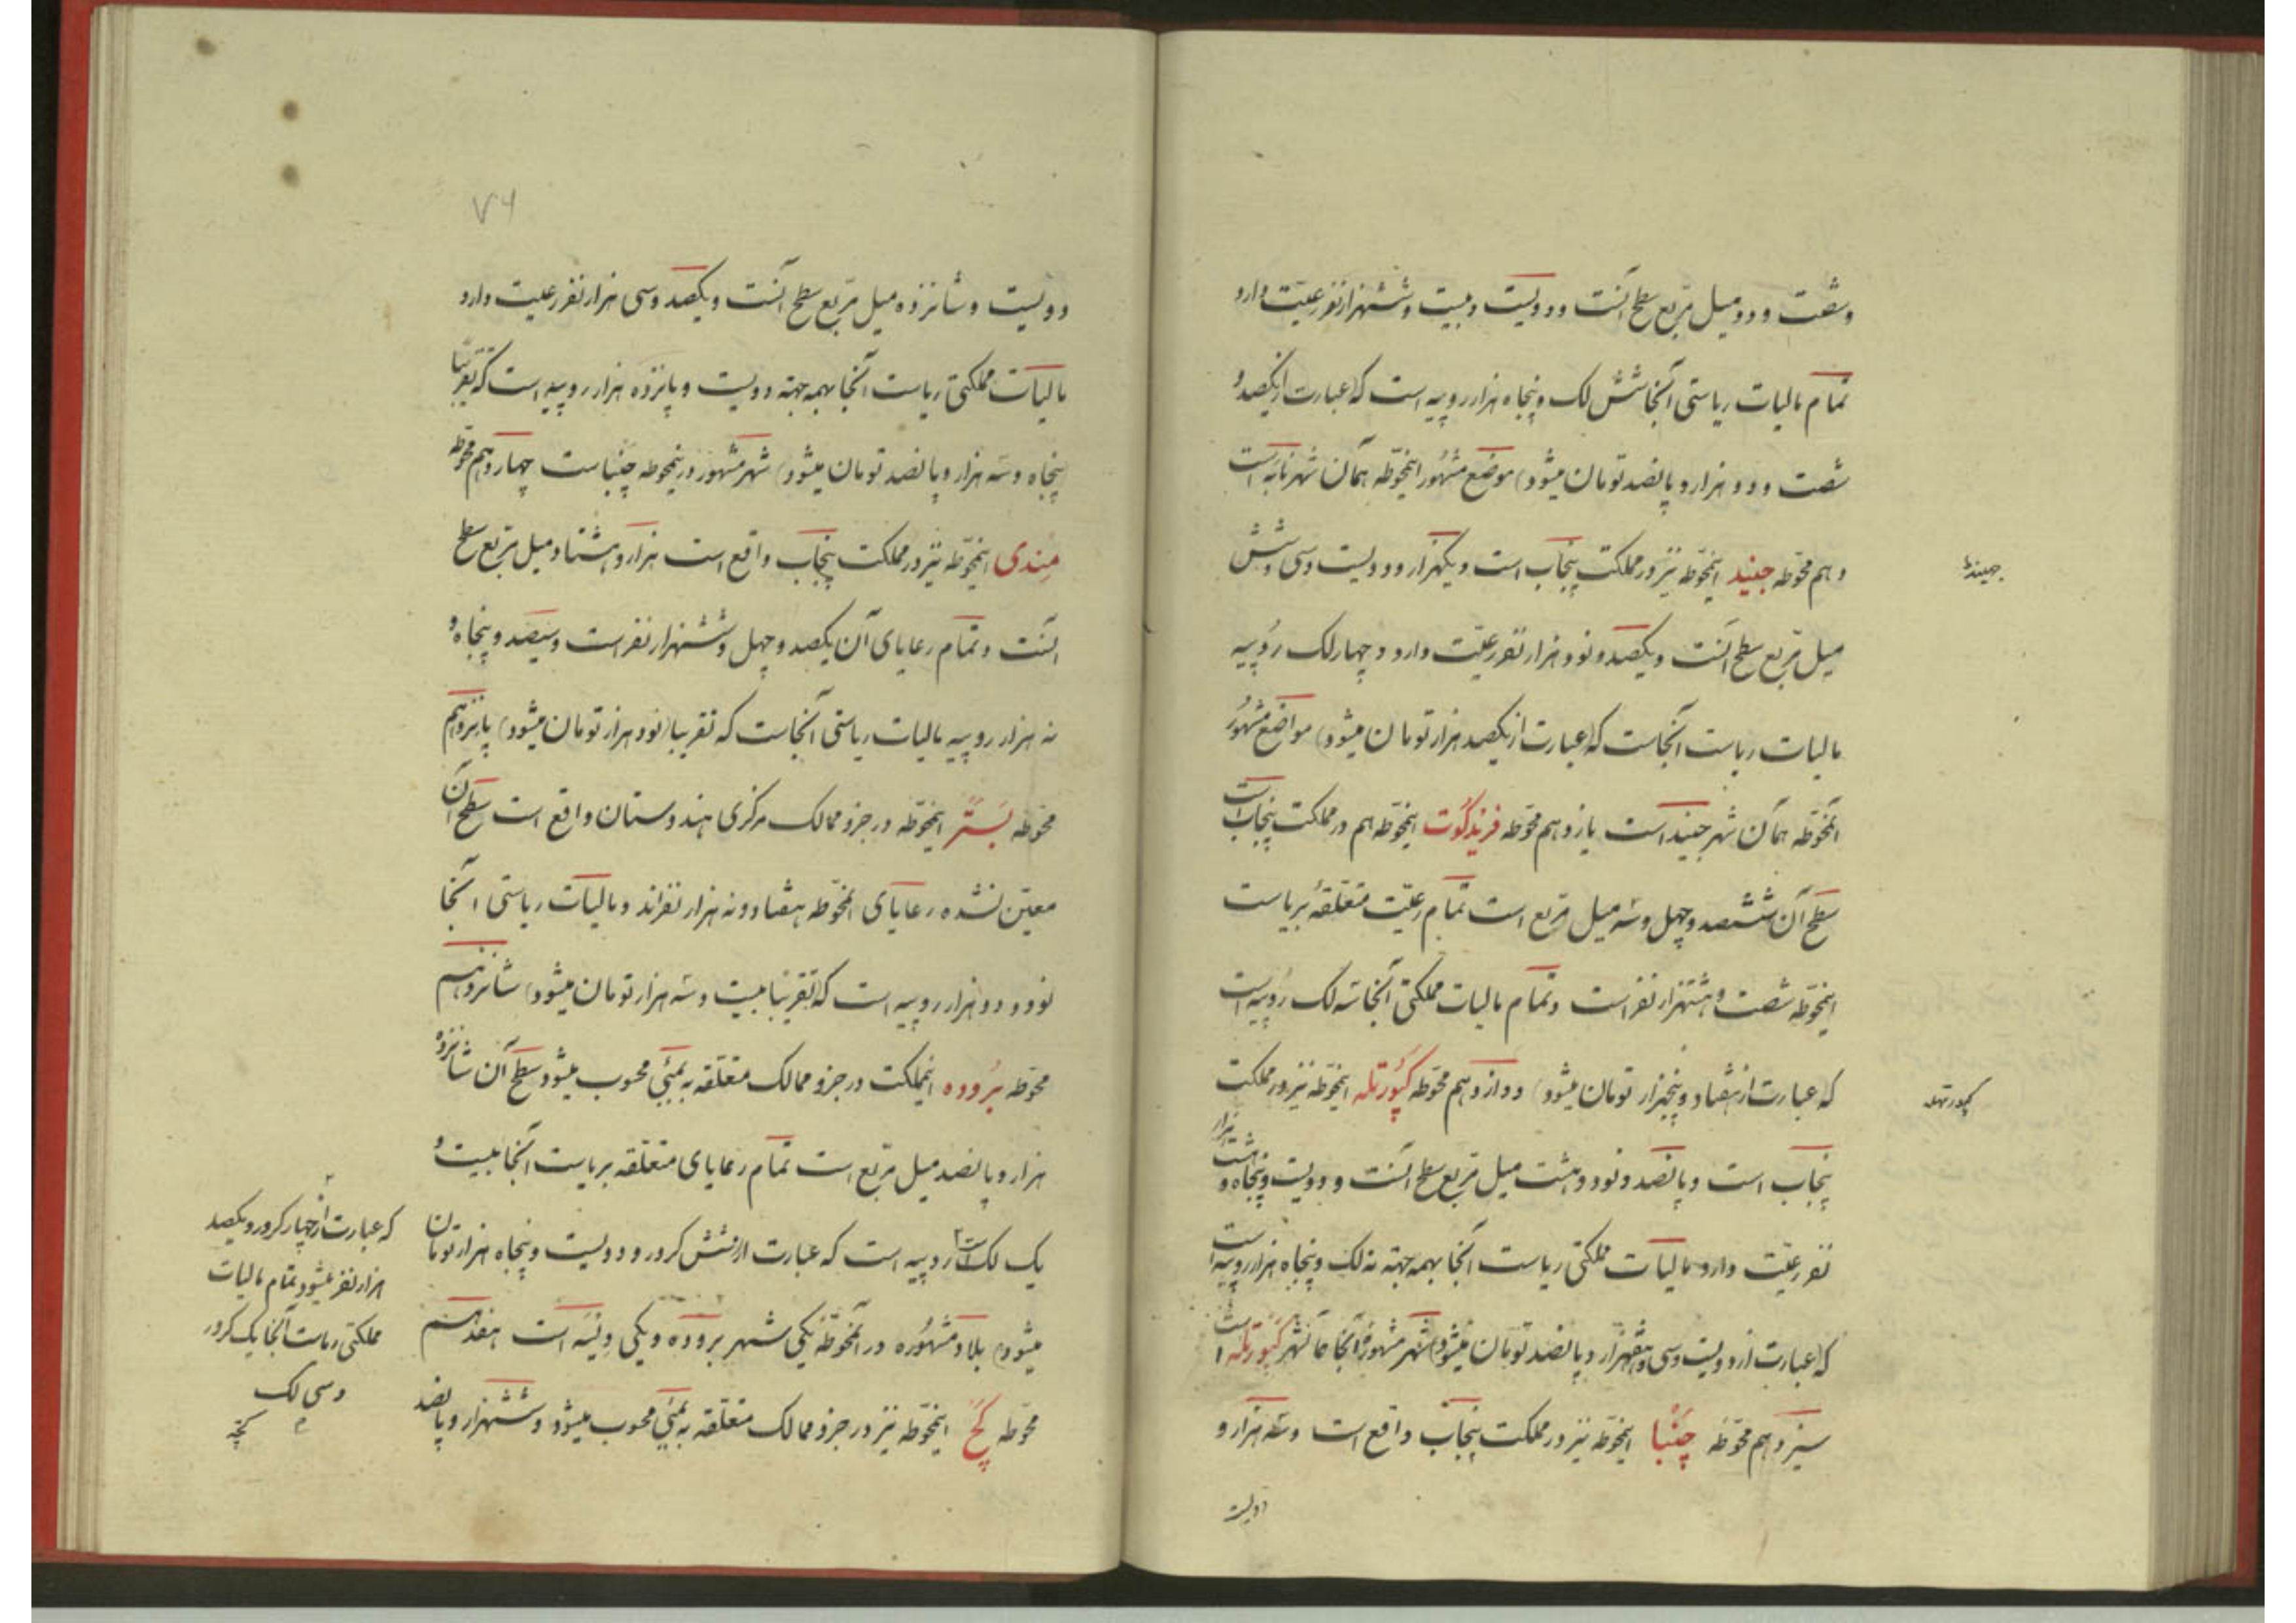 و شصت و دو میل مربع سطح آنست و دویست و بیست و ششهزار نفر رعیت دارد
تمام مالیات ریاستی آنجا شش لک و پنجاه هزار روپیه است که (عبارت از یکصد و
شصت و دو هزار و پانصد تومان میشود) موضع مشهور اینحوطه همان شهر نابه است
دهم محوطه جیند اینحوطه نیز در مملکت پنجاب است و یکهزار و دویست و سی و شش
جیندا
میل مربع سطح آنست و یکصد و نود هزار نفر رعیت دارد و چهار لک روپیه
مالیات ریاست آنجاست که (عبارت از یکصد هزار تومان میشود) مواضع مشهور
آنحوطه همان شهر جیند است یازدهم محوطه فرندکوت اینحوطه هم در مملکت پنجاب است
سطح آن ششصد و چهل و سه میل مربع است تمام رعیت متعلقه بریاست
اینحوطه شصت و هشتهزار نفر است و تمام مالیات مملکتی آنجا سه لک روپیه است
که عبارت از هفتاد و پنجهزار تومان میشود) دوازدهم محوطه کپورتله اینحوطه نیز در مملکت
کپورتهله
پنجاب است و پانصد و نود و هشت میل مربع سطح آنست و دویست و پنجاه و هشت هزار
نفر رعیت دارد مالیات مملکتی ریاست آنجا بهمه جهته نه لک و پنجاه هزار روپیه است
که (عبارت از دویست و سی و هفتهزار و پانصد تومان میشود) شهر مشهور آنجا همانشهر کپورتله است
سیزدهم محوطه چنبا اینحوطه نیز در مملکت پنجاب واقع است و سه هزار و
دویست
۷۶
دویست و شانزده میل مربع سطح آنست و یکصد و سی هزار نفر رعیت دارد
مالیات مملکتی ریاست آنجا بهمه جهته دویست و پانزده هزار روپیه است که تقریبا
(پنجاه و سه هزار و پانصد تومان میشود) شهر مشهور در ینحوطه چنباست چهاردهم محوطه
مندی اینحوطه نیز در مملکت پنجاب واقع است هزار و هشتاد میل مربع سطح
آنست و تمام رعایای آن یکصد و چهل و ششهزار نفر است و سیصد و پنجاه و
نه هزار روپیه مالیات ریاستی آنجاست که تقریبا (نود هزار تومان میشود) پانزدهم
محوطه بستر اینحوطه در جزو ممالک مرکزی هندوستان واقع است سطح آن
معین نشده رعایای آنحوطه هفتاد و نه هزار نفراند و مالیات ریاستی آنجا
نود و دو هزار روپیه است که (تقریبا بیست و سه هزار تومان میشود) شانزدهم
محوطه بروده اینمملکت در جزو ممالک متعلقه به بمبئی محسوب میشود سطح آن شانزده
هزار و پانصد میل مربع است تمام رعایای متعلقه بریاست آنجا بیست و
یک لک است روپیه است که عبارت از شش کرور و دویست و پنجاه هزار تومان
میشود) بلاد مشهوره در آنحوطه یکی شهر بروده و یکی ویسه است هفدهم
محوطه کچ اینحوطه نیز در جزو ممالک متعلقه به بمبئی محسوب میشود و ششهزار و پانصد
که عبارت از چهار کرور و یکصد
هزار نفر میشود تمام مالیات
مملکتی ریاست آنجا یک کرور
و سی لک
کچه